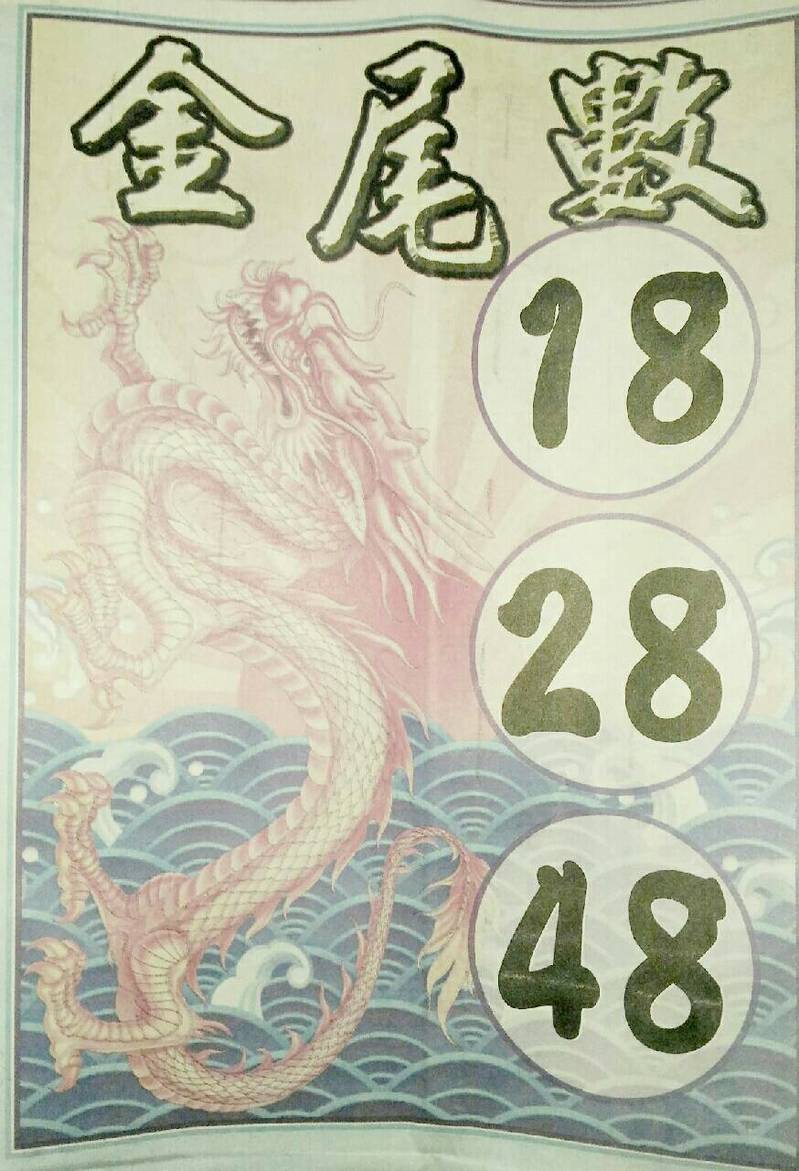 金尾數
18
28
48